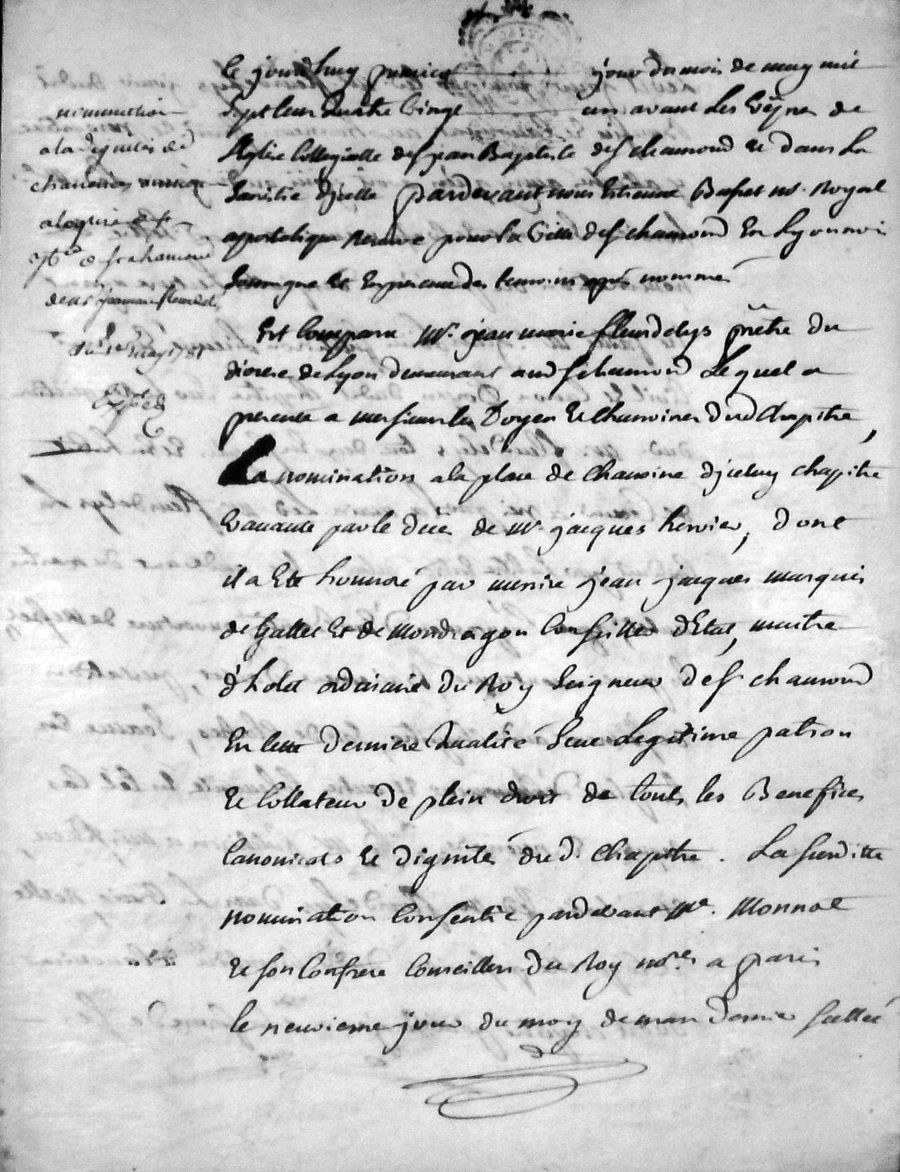 nomination
a la dignité de
chanoine
a l'eglise de St
jbte de st chamond
de mr jeanmarie fleurdelis
du 1er may 1781
Expéd
ce jourdhuy premier jour du mois de may mil
sept cent quatre vingt un avant les vêpres de
l'Eglise Collegialle de st jean Baptiste de st chamond et dans la
sacristie d'icelle pardevant nous Estienne not. Royal
apostolique reservé pour la Ville de st chamond En Lyonnois
soussigné Et En presence des temoins après nommés
Est Comparu Mr. jean marie fleurdelys prêtre du
diocese de Lyon demeurant aud st chamond Lequel a
presenté a messieurs les Doyen et chanoines dud Chapitre,
La nomination a la place de chanoine d'jceluy chapitre
vacante par le décès de Mr jacques hervier, dont
il a Eté honnoré par messire jean jacques marquis
de Gallet Et de Mondragon Conseiller d'Etat, maitre
d'hotel ordinaire du Roy seigneur de st chamond
En cette derniere qualité seul Legitime patron
et Collateur de plein droit de touts les Benefices
Canonicats et dignités dud. chapitre. La susditte
nomination Consentie pardevant Me. Monnot
et son Confrère Conseillers du Roy notres a paris
le neuvieme jour du moy de mars dernier scellé